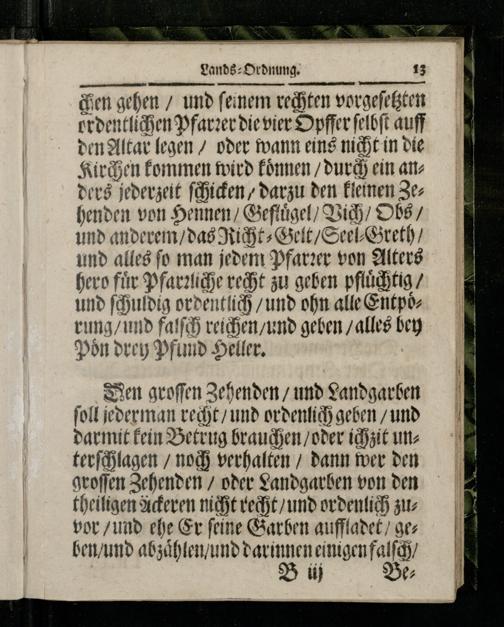 Lands-Ordnung. 13
chen gehen / und seinem rechten vorgesetzten
ordentlichen Pfarrer die vier Opffer selbst auff
den Altar legen / oder wann eins nicht in die
Kirchen kommen wird können / durch ein an-
ders jederzeit schicken / darzu den kleinen Ze-
henden von Hennen / Geflügel / Vich / Obs /
und anderem / das Richt-Gelt / Seel-Greth /
und alles so man jedem Pfarrer von Alters
hero für Pfarrliche recht zu geben pflüchtig /
und schuldig ordentlich / und ohn alle Entpö-
rung / und falsch reichen / und geben / alles bey
Pön drey Pfund Heller.
Den grossen Zehenden / und Landgarben
soll jederman recht / und ordenlich geben / und
darmit kein Betrug brauchen / oder ichzit un-
terschlagen / noch verhalten / dann wer den
grossen Zehenden / oder Landgarben von den
theiligen äckeren nicht recht / und ordenlich zu-
vor / und ehe Er seine Garben auffladet / ge-
ben / und abzählen / und darinnen einigen falsch /
B iij Be-